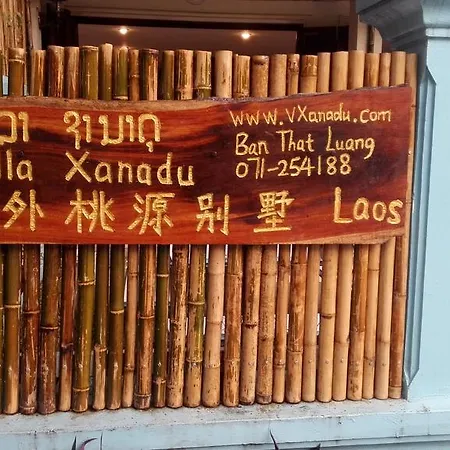 ຊານາດູ
Xanadu
外桃源别墅 Laos
www.VXanadu.com
Ban That Luang
071-254188